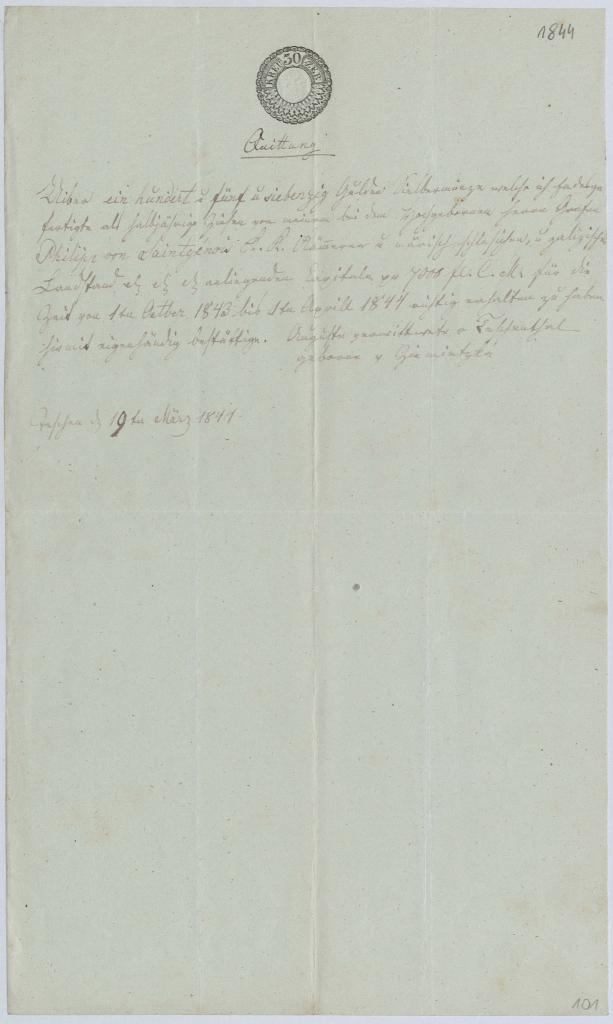 1844
30 KREUZER
Quittung
Uiber ein hundert u fünf u siebenzig Gulden Silbermünze welche ich Endesge
fertigte als halbjährige Zinsen von meinem bei dem Hochgebornen Herrn Grafen
Philipp von Saintgenois K. K. Kämmerer u mährisch schlesischen, u galizischen
Landstand anliegenden Capitale pr 7000 fl. C. M. für die
Zeit von 1tn Octber 1843 bis 1tn Aprill 1844 richtig erhalten zu haben
hiermit eigenhändig bestättige. Auguste verwittwete v
geborne v
Teschen d 19tn März 1844
101